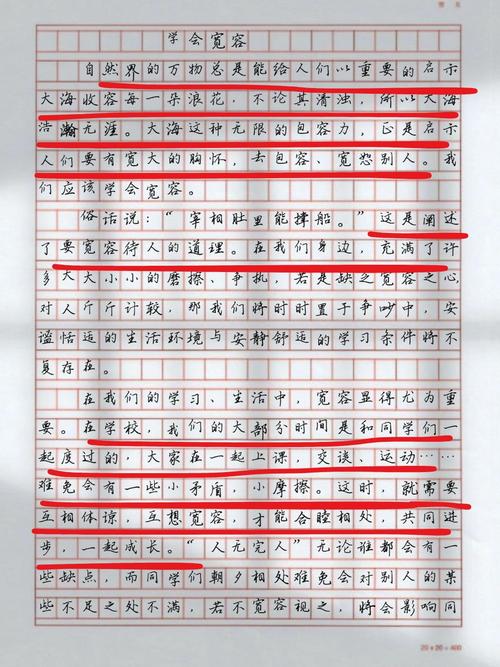 学会宽容
自然界的万物总是能给人们以重要的启示
大海收容每一朵浪花，不论其清浊，所以大海
浩瀚无涯。大海这种无限的包容力，正是启示
人们要有宽大的胸怀，去包容、宽恕别人。我
们应该学会宽容。
俗话说：“宰相肚里能撑船。”这是阐述
了要宽容待人的道理。在我们身边，充满了许
多大大小小的磨擦、争执，若是缺乏宽容之心，
对人斤斤计较，那我们将时时置于争吵中，安
谧恬适的生活环境与安静舒适的学习条件将不
复存在。
在我们的学习、生活中，宽容显得尤为重
要。在学校，我们的大部分时间是和同学们一
起度过的，大家在一起上课，交谈、运动……
难免会有一些小矛盾，小摩擦。这时，就需要
互相体谅，互想宽容，才能合睦相处，共同进
步，一起成长。“人无完人”无论谁都会有一
些缺点，而同学们朝夕相处难免会对别人的某
些不足之处不满，若不宽容视之，将会影响同
20×20=400